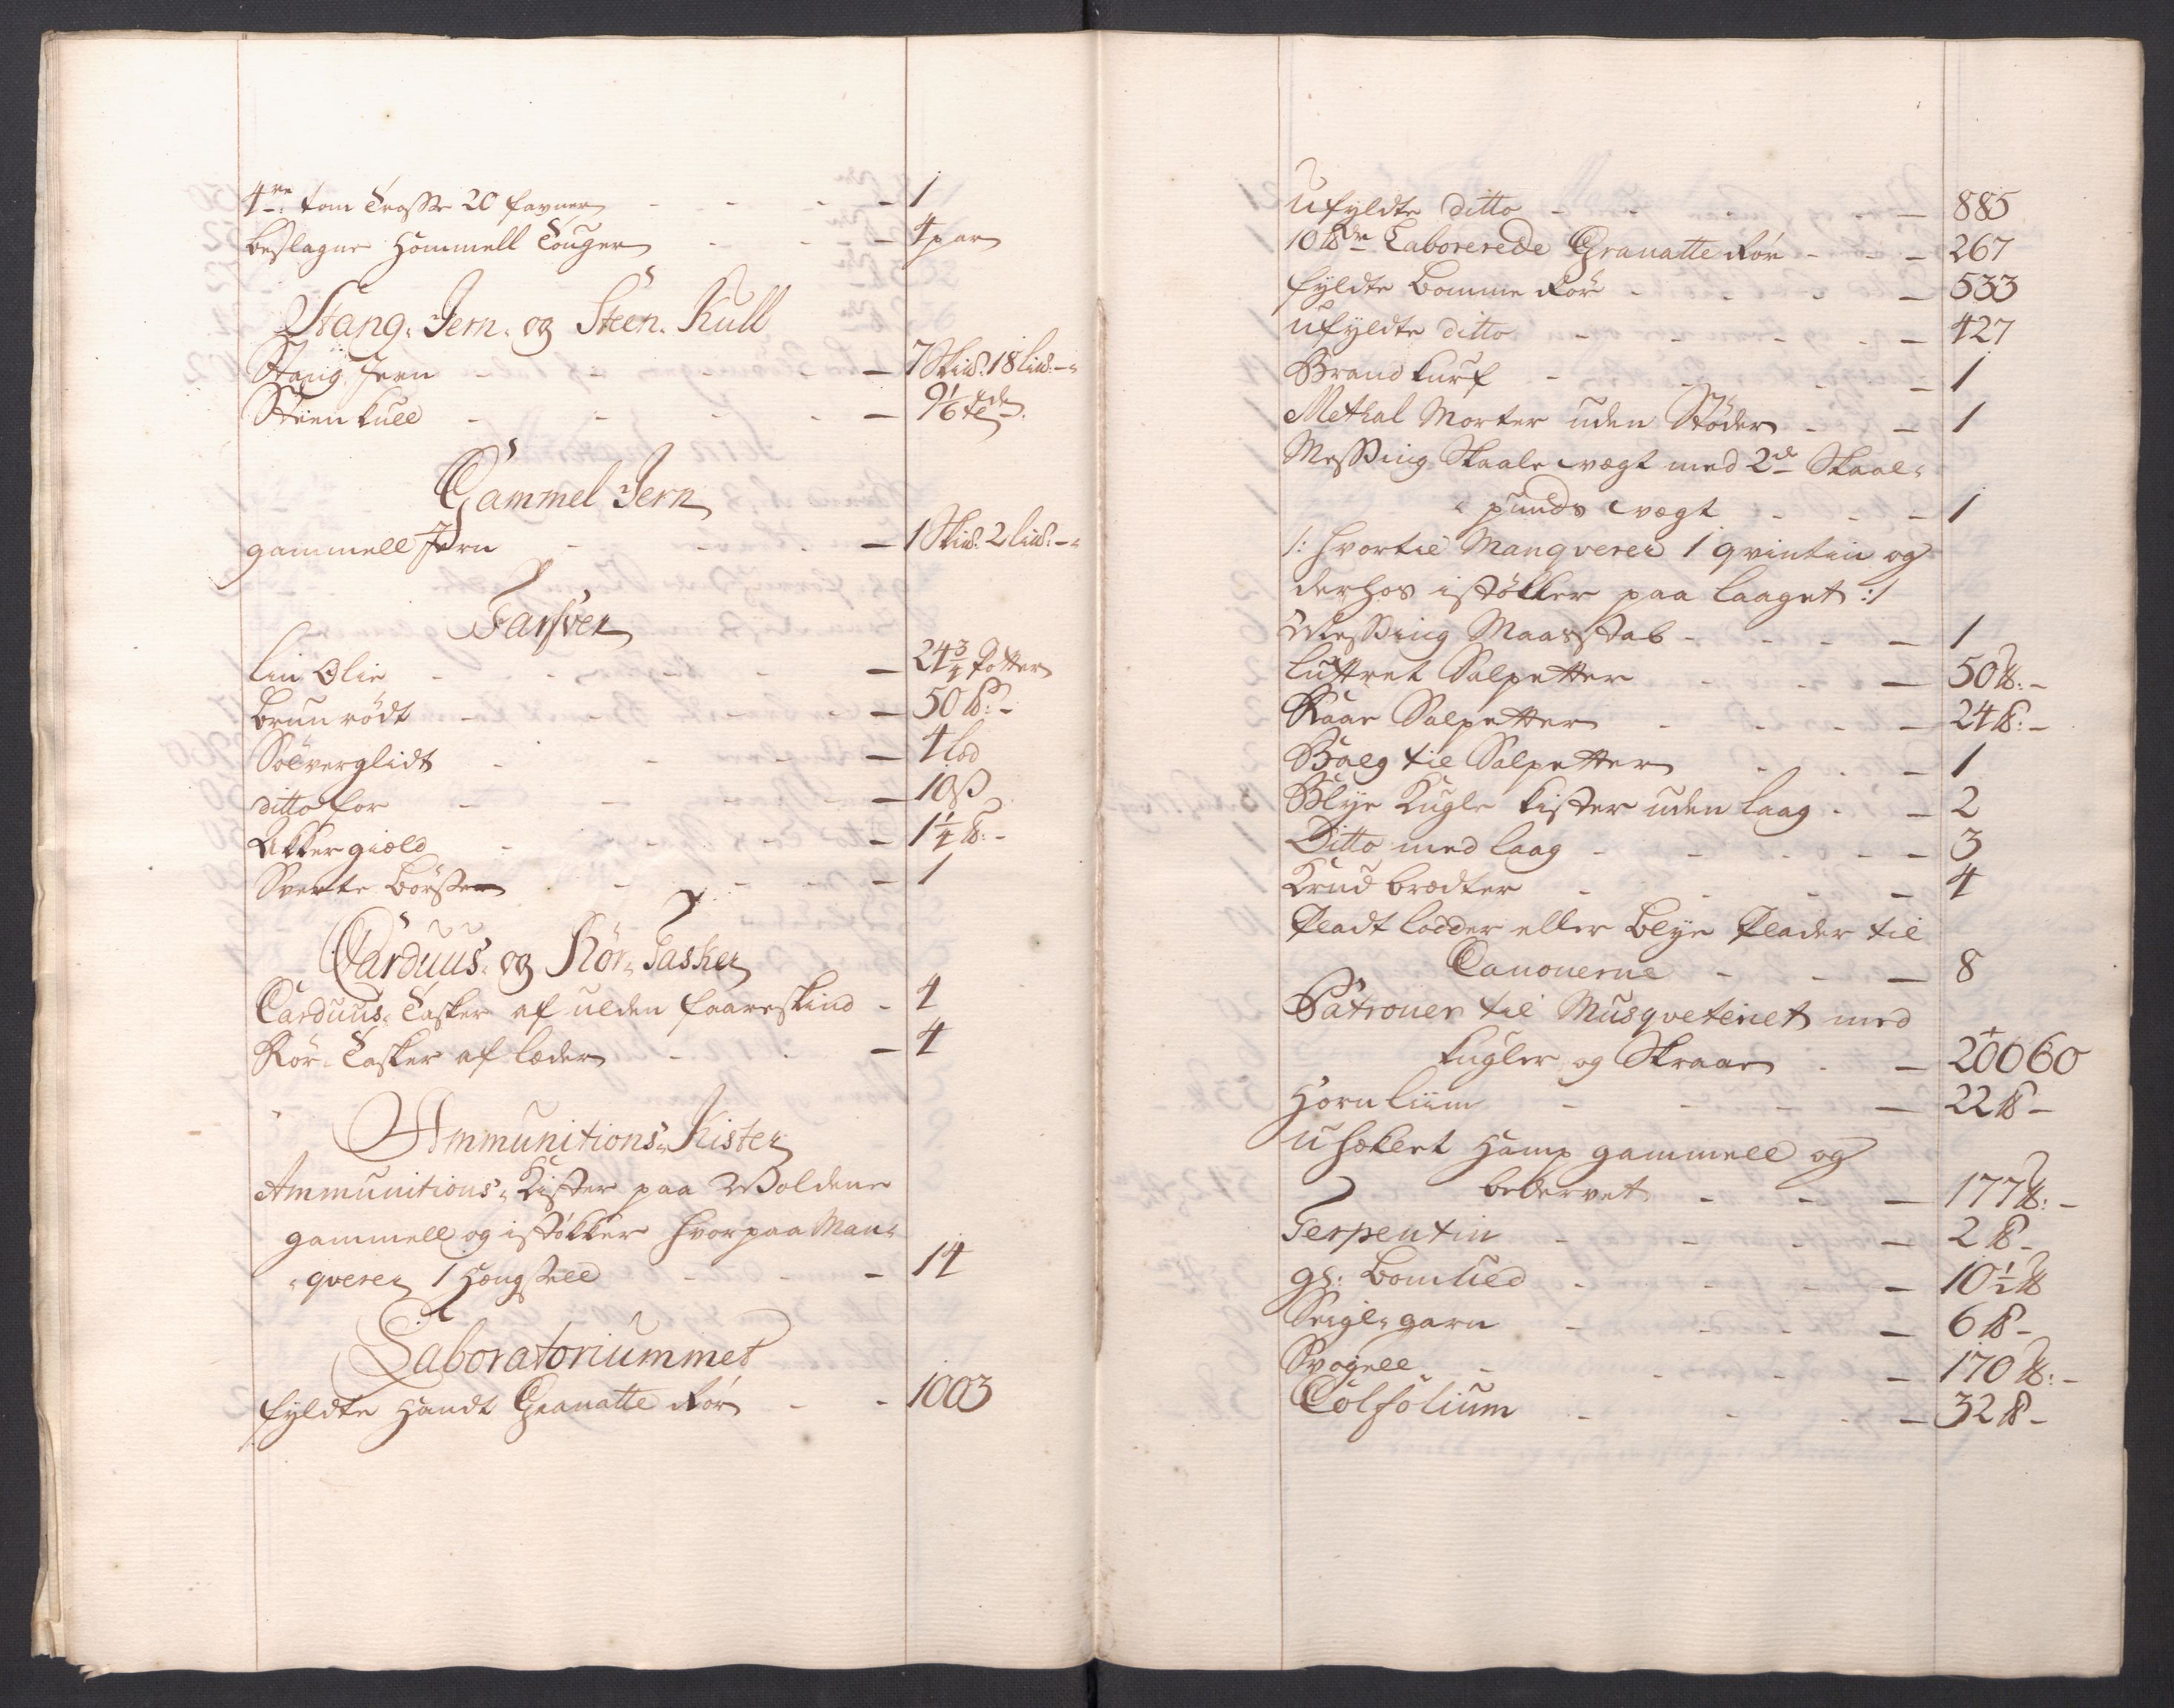 4re tom Trosse 20 favner - - - 1
beslagne Hommell Touger - - - 4 par
Stang. Jern. og Steen. Kull
Stang Jern - - - 7 Skid: 18 Lid: -
Steen kull - - - 9 1/6 tdr
Gammel Jern
gammell Jern - - - 1 Skid: 2 Lid: -
Farfver
Lin Olie - - - 24 3/4 Potter
Brunrödt - - - 50 ℔: -
Sölverglidt - - - 4 lod
ditto for - - - 10 ß
Akkergield - - - 1 1/4 ℔: -
Sverte Börster - - - 1
Carduus. og Rör. Tasker
Carduus. Tasker af ulden faareskind - 4
Rör. Tasker af læder - - 4
Ammunitions. Kister
Ammunitions. Kister paa Woldene
gammell og istökker hvorpaa Man-
qverer 1 Hængsell - - - 14
Laboratoriummet
fyldte Handt Granatte Rör - - 1003
ufyldte ditto - - - 885
10 ℔de Laborerede Granatte Rör - - 267
fyldte Bomme Rör - - - 533
ufyldte ditto - - - 427
Brand kurf - - - 1
Methal Morter uden Stöder - - 1
Messing Skaale vægt med 2de Skaal-
punds vægt - - - 1
/: hvortil Manqverer 1 qvintin og
derhos istökker paa laaget :/
Messing Maasstab - - - 1
Luttret Salpetter - - - 50 ℔: -
Raae Salpetter - - - 24 ℔: -
Balg til Salpetter - - - 1
Blye Kugle kister uden laag - - 2
Ditto med laag - - - 3
Krud brædter - - - 4
Pladt lodder eller Blye Plader til
Canonerne - - - 8
Patroner til Musqveteriet med
kugler og Skraae - - 20060
Hornliim - - - 22 ℔ -
Uheklet Hamp gammell og
bedervet - - - 177 ℔: -
Terpentin - - - 2 ℔ -
gl: Bomuld - - - 10 1/2 ℔
Seigl. garn - - - 6 ℔ -
Svogell - - - 170 ℔: -
Colfolium - - - 32 ℔ -